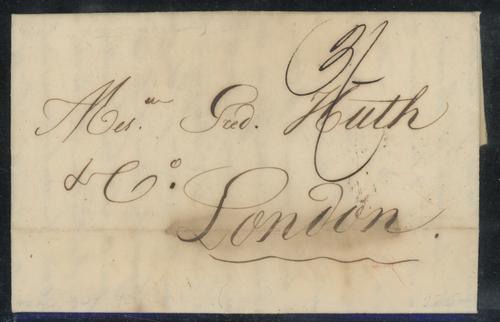 3/
Mes.rs Fred. Huth
& Co.
London.